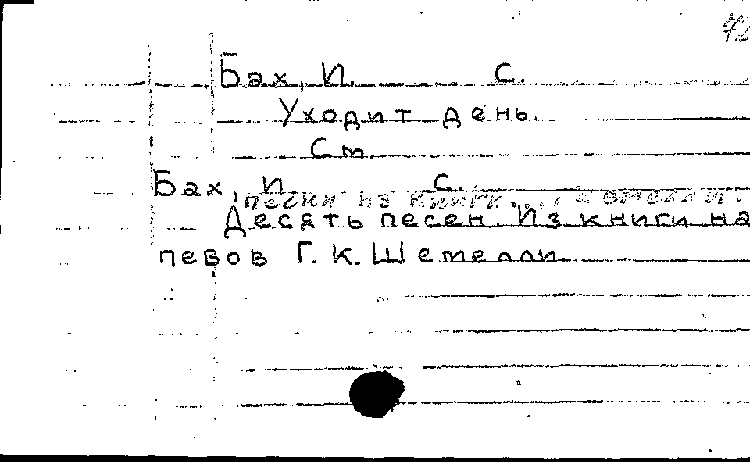 Бах, И. С.
Уходит день.
См.
Бах, И. С.
Песни из книги... Шемелли.
Десять песен. Из книги на
певов Г. К. Шемелли